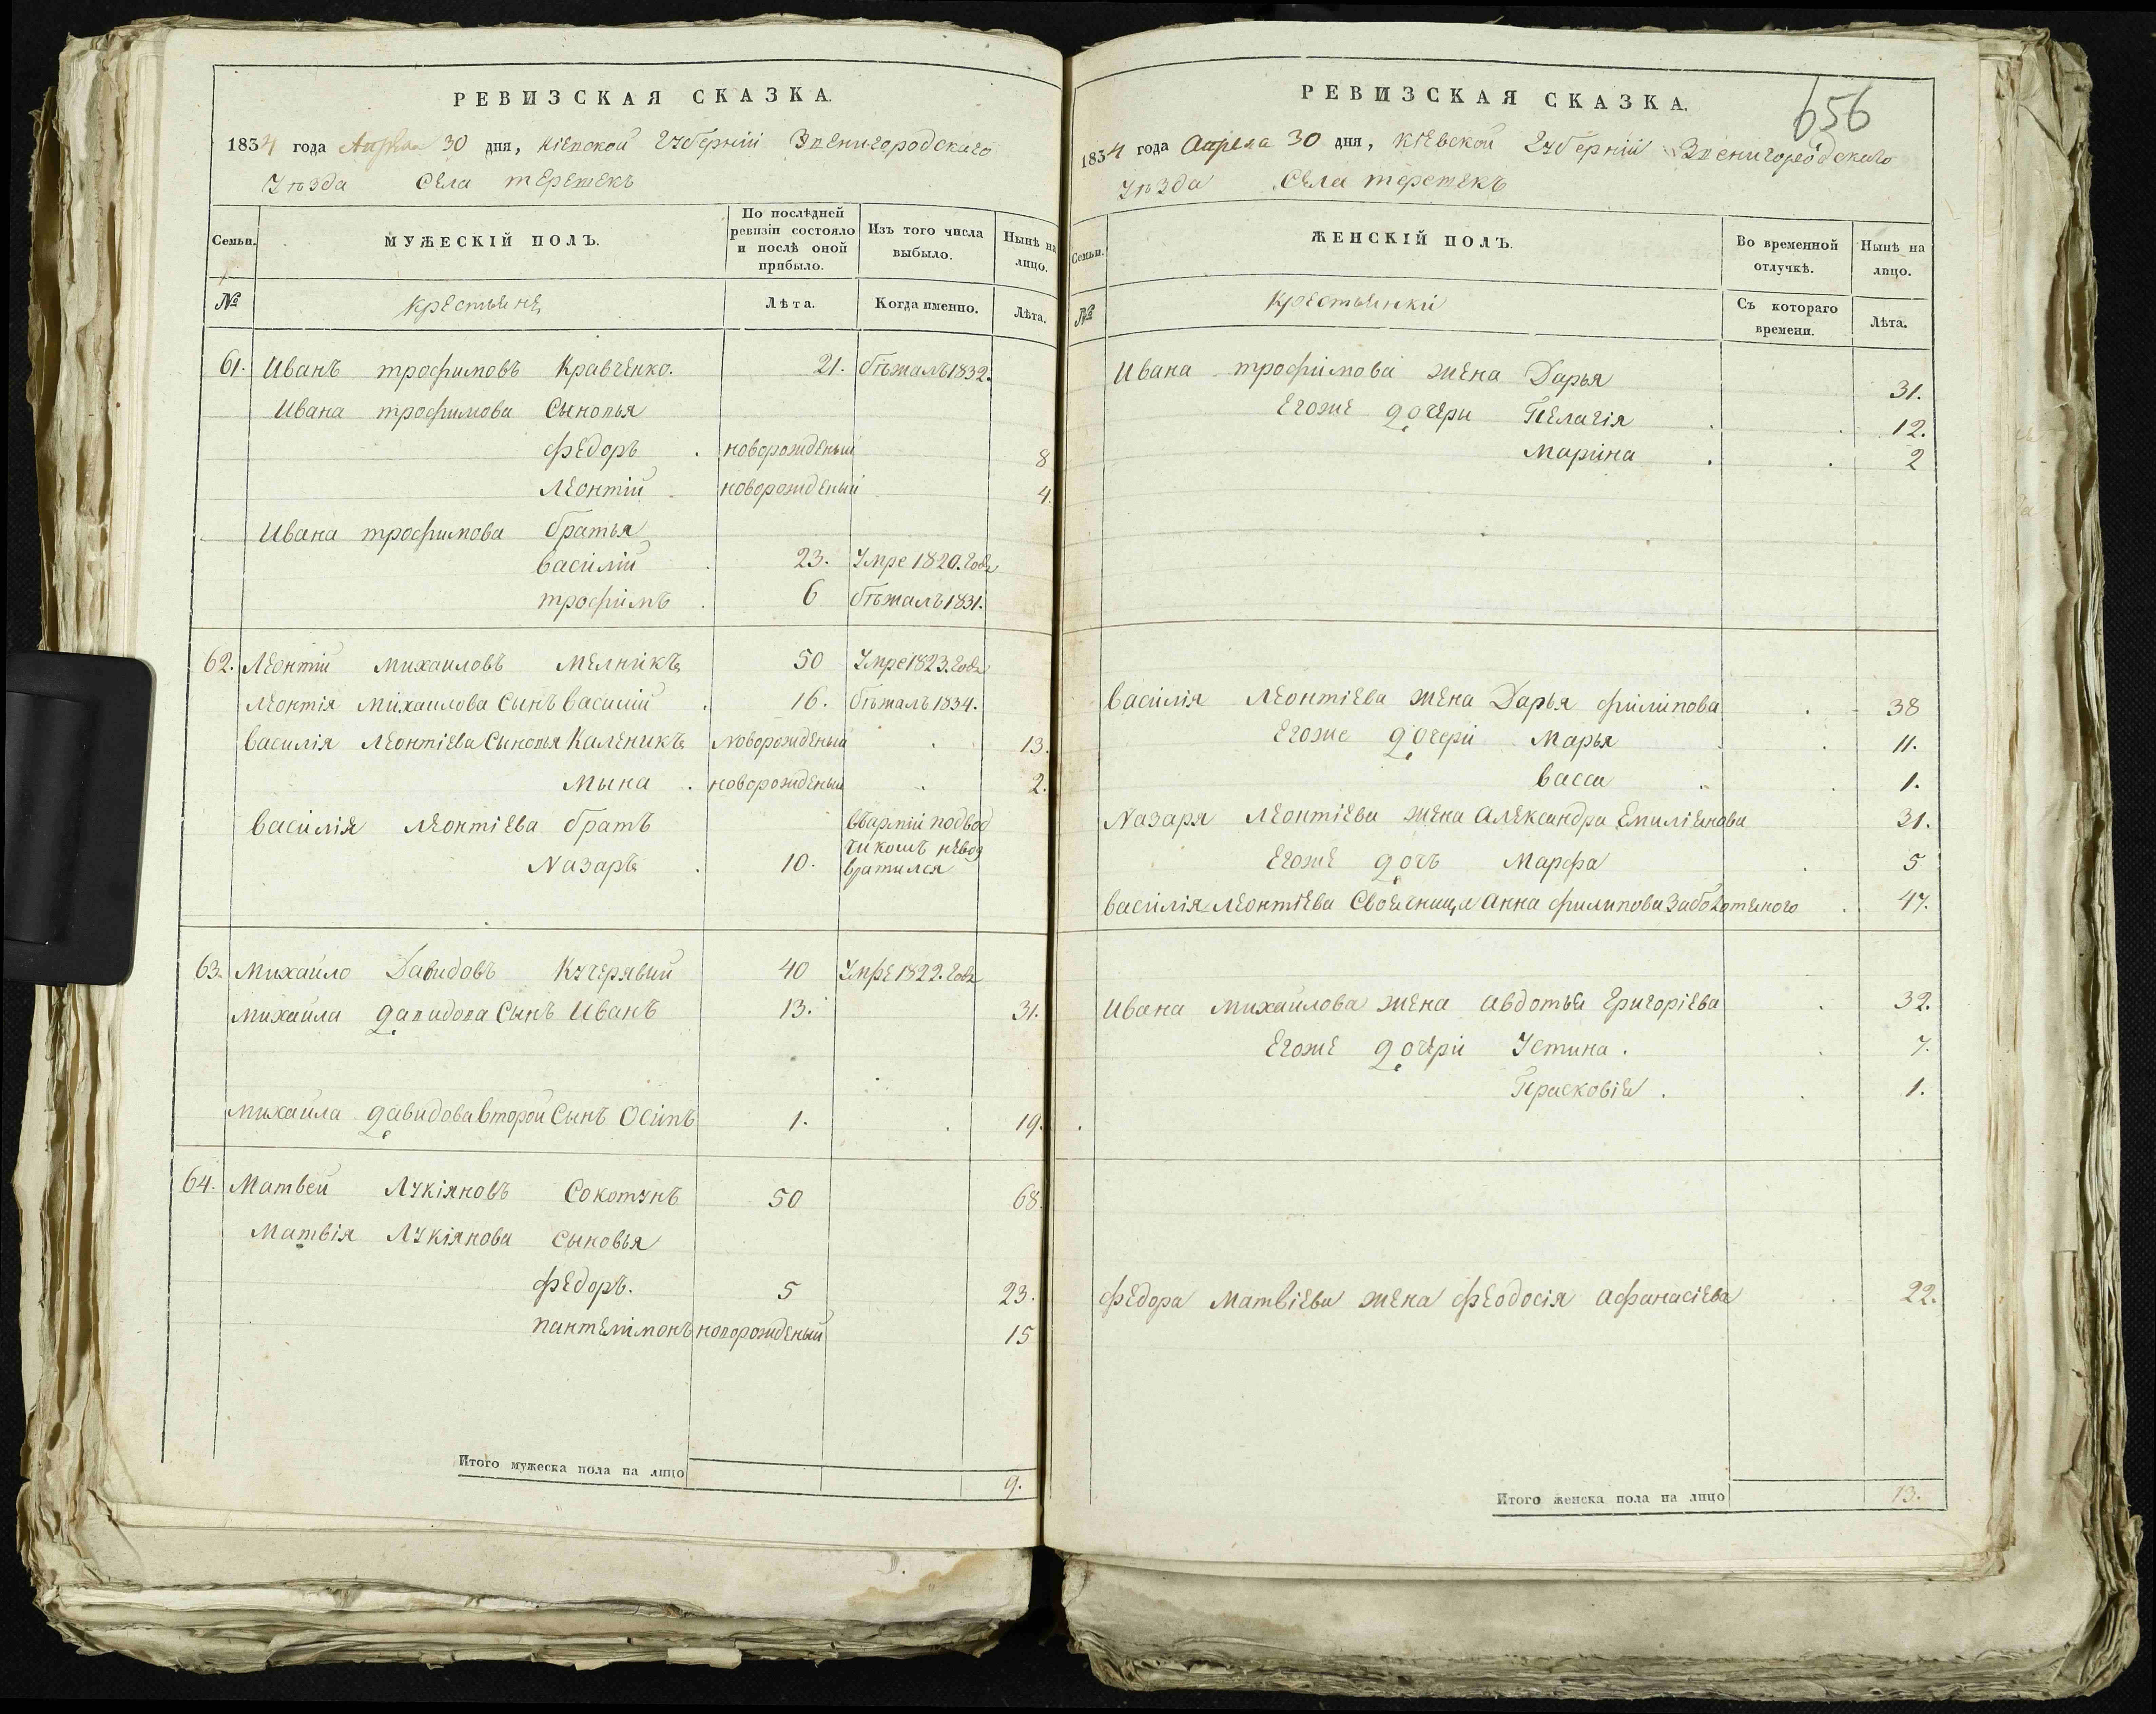 РЕВИЗСКАЯ СКАЗКА.
1834 года Апреля 30 дня, Кіевской Губерніи Звенигородскаго
Уѣзда Села
Семьи. МУЖЕСКІЙ ПОЛЪ. По послѣдней ревизіи состояло и послѣ оной прибыло. Изъ того числа выбыло. Нынѣ на лицо.
№ Крестьяне Лѣта. Когда именно. Лѣта.
61. Иванъ трофимовъ Кравченко. 21. бѣжалъ 1832.
Ивана трофимова Сыновья
федоръ новорожденый 8
Леонтій новорожденый 4.
Ивана трофимова братья
василій 23. Умре 1820. года
трофимъ 6 бѣжалъ 1831.
62. Леонтій Михаиловъ Мелникъ 50 Умре 1823. года
Леонтія Михаилова Сынъ василий 16. бѣжалъ 1834.
василія Леонтіева Сыновья Каленикъ новорожденый 13.
Мына новорожденый 2.
василія Леонтіева братъ вѣармій подвод
чикомъ невоз
Назаръ 10. вратился
63. Михайло Давидовъ Кучерявий 40 Умре 1822. года
Михаила давидова Сынъ Иванъ 13. 31.
Михаила давидова второй Сынъ Осипъ 1. 19.
64. Матвей Лукіяновъ Сокотунъ 50 68.
Матвія Лукіянова сыновья
федоръ. 5 23.
пантелимонъ новорожденый 15
Итого мужеска пола на лицо 9.
656
РЕВИЗСКАЯ СКАЗКА.
1834 года Апреля 30 дня, Кіевской Губерніи Звенигородскаго
Уѣзда Села
Семьи. ЖЕНСКІЙ ПОЛЪ. Во временной отлучкѣ. Нынѣ на лицо.
№ Крестьянки Съ котораго времени. Лѣта.
Ивана трофимова жена Дарья 31.
Егоже дочери Пелагія 12.
Марина 2
василія Леонтіева жена Дарья филипова 38
Егоже дочери Марья 11.
васса 1.
Назаря Леонтіева жена Александра Емиліянова 31.
Егоже дочъ Марфа 5
василія Леонтіева Своячница Анна филипова 47.
Ивана Михайлова жена Авдотья Григоріева 32.
Егоже дочери Устина. 7.
Парасковія. 1.
федора Матвіева жена феодосія Афанасіева 22.
Итого женска пола на лицо 13.